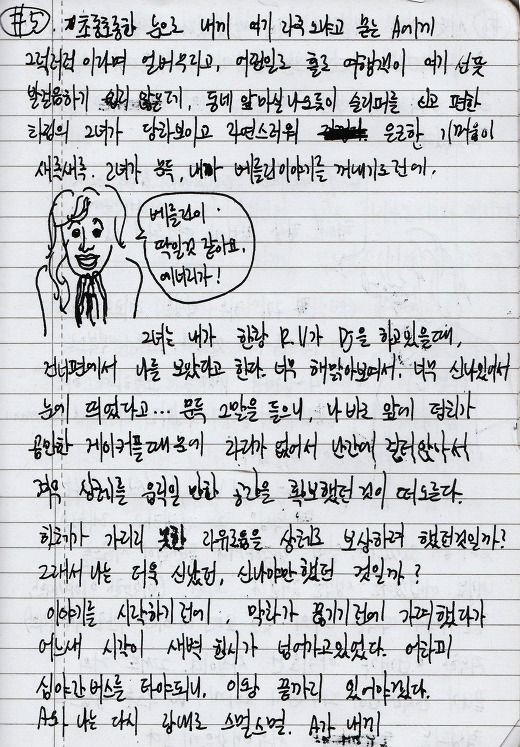 #5. 초롱초롱한 눈으로 내게 여기 자주 오냐고 묻는 A에게
그럭저럭 이라며 얼버무리고, 여인으로 홀로 여행객이 여기 선뜻
발걸음하기 쉽지 않은데, 동네 앞마실나오듯이 슬리퍼를 신고 편한
차림의 그녀가 달라보이고 자연스러워 은근한 기꺼움이
새록새록. 그녀가 문득, 내게 베를린이야기를 꺼내기도 전에.
베를린이.
딱일것 같아요.
에너지가!
그녀는 내가 한참 R.V가 DJ을 하고있을때,
건너편에서 나를 보았다고 한다. 너무 해맑아보여서. 너무 신나있어서
눈에 띄었다고... 문득 그말을 들으니, 나 바로 앞에
게이커플때문에 자리가 없어서 난간에 걸터앉아서
겨우 상체를 움직일 만한 공간을 확보했던 것이 떠오른다.
하체가 가지지 못한 자유로움을 상체로 보상하려 했던것일까?
그래서 나는 더욱 신났던, 신나야만했던 것일까?
이야기를 시작하기전에, 막차가 끊기기전에 가려했다가
어느새 시각이 새벽 한시가 넘어가고있었다. 어차피
심야간버스를 타야되니, 이왕 끝까지 있어야겠다.
A와 나는 다시 스멀스멀. A가 내게